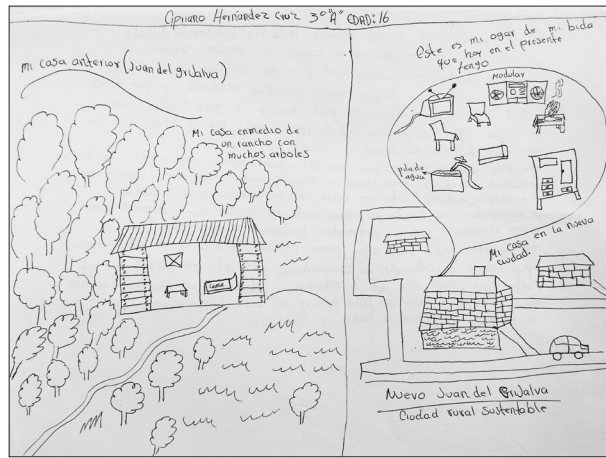 Cipriano Hernández Cruz 3º "A" EDAD: 16
mi casa anterior (Juan del grijalva)
Mi casa enmedio de
un rancho con
muchos arboles
cama
Este es mi ogar de mi bida
que hoy en el presente
tengo
Modular
pila de
agua
Mi casa en la nueva
ciudad.
Nuevo Juan del Grijalva
Ciudad rural Sustentable